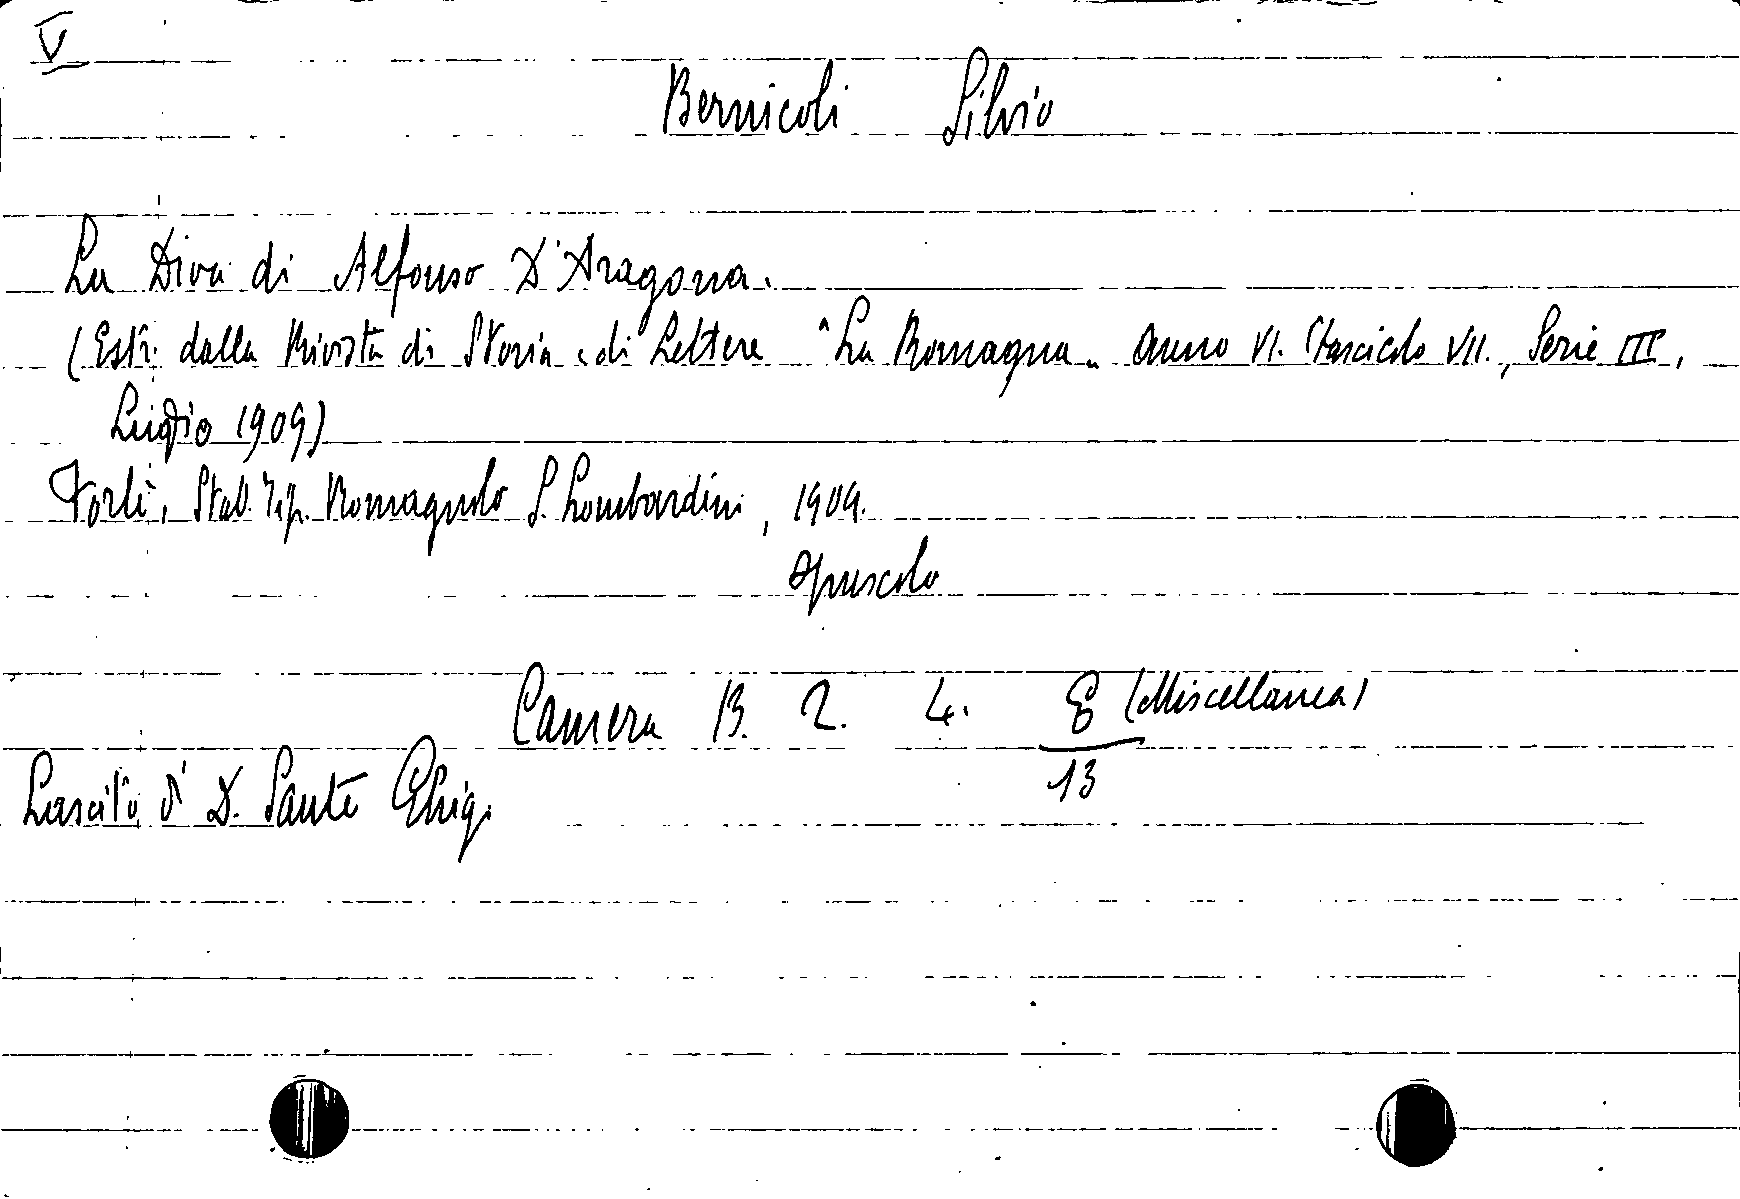 V
Bernicoli Silvio
La Diva di Alfonso D'Aragona.
(Estr. dalla Rivista di Storia e di Lettere "La Romagna" Anno VI. Fascicolo VII., Serie III,
Luglio 1909)
Forlì, Stab. Tip. Romagnolo S. Lombardini, 1909.
opuscolo
Camera B. 2. 4. E (Miscellanea)
13
Lascito di D. Sante Ghigi